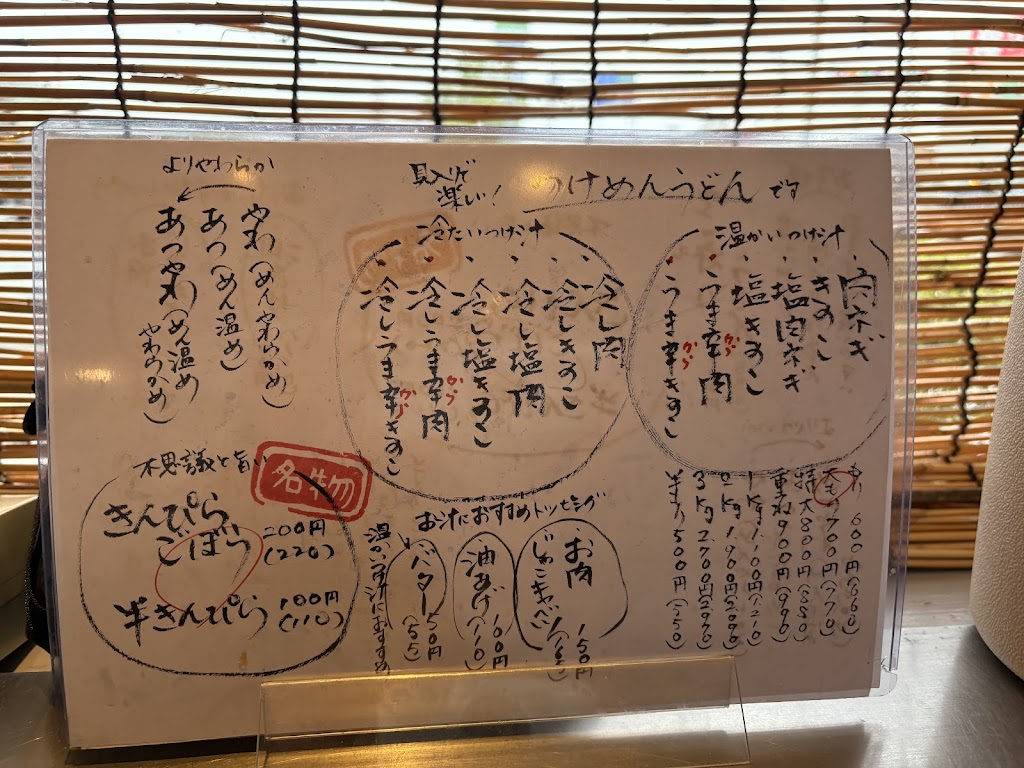 つけめんうどんです
具入りで
楽しい！
温かいつけ汁
・肉ネギ
・きのこ
・塩肉ネギ
・塩きのこ
・うま辛肉
から
・うま辛きのこ
から
冷たいつけ汁
・冷し肉
・冷しきのこ
・冷し塩肉
・冷し塩きのこ
・冷しうま辛肉
から
・冷しうま辛きのこ
から
よりやわらか
やわ（めんやわらかめ）
あつ（めん温め）
あつやわ（めん温めやわらかめ）
600円(660)
大もり700円(770)
特大800円(880)
重ね900円(990)
1kg1100円(1210)
2kg1900円(2090)
3kg2700円(2970)
半もり500円(550)
お汁におすすめトッピング
お肉
じゃこキャベツ
150円
(165)
油あげ100円
(110)
バター50円
(55)
温かつけ汁におすすめ
名物
不思議と旨い
きんぴら
ごぼう
200円
(220)
半きんぴら
100円
(110)